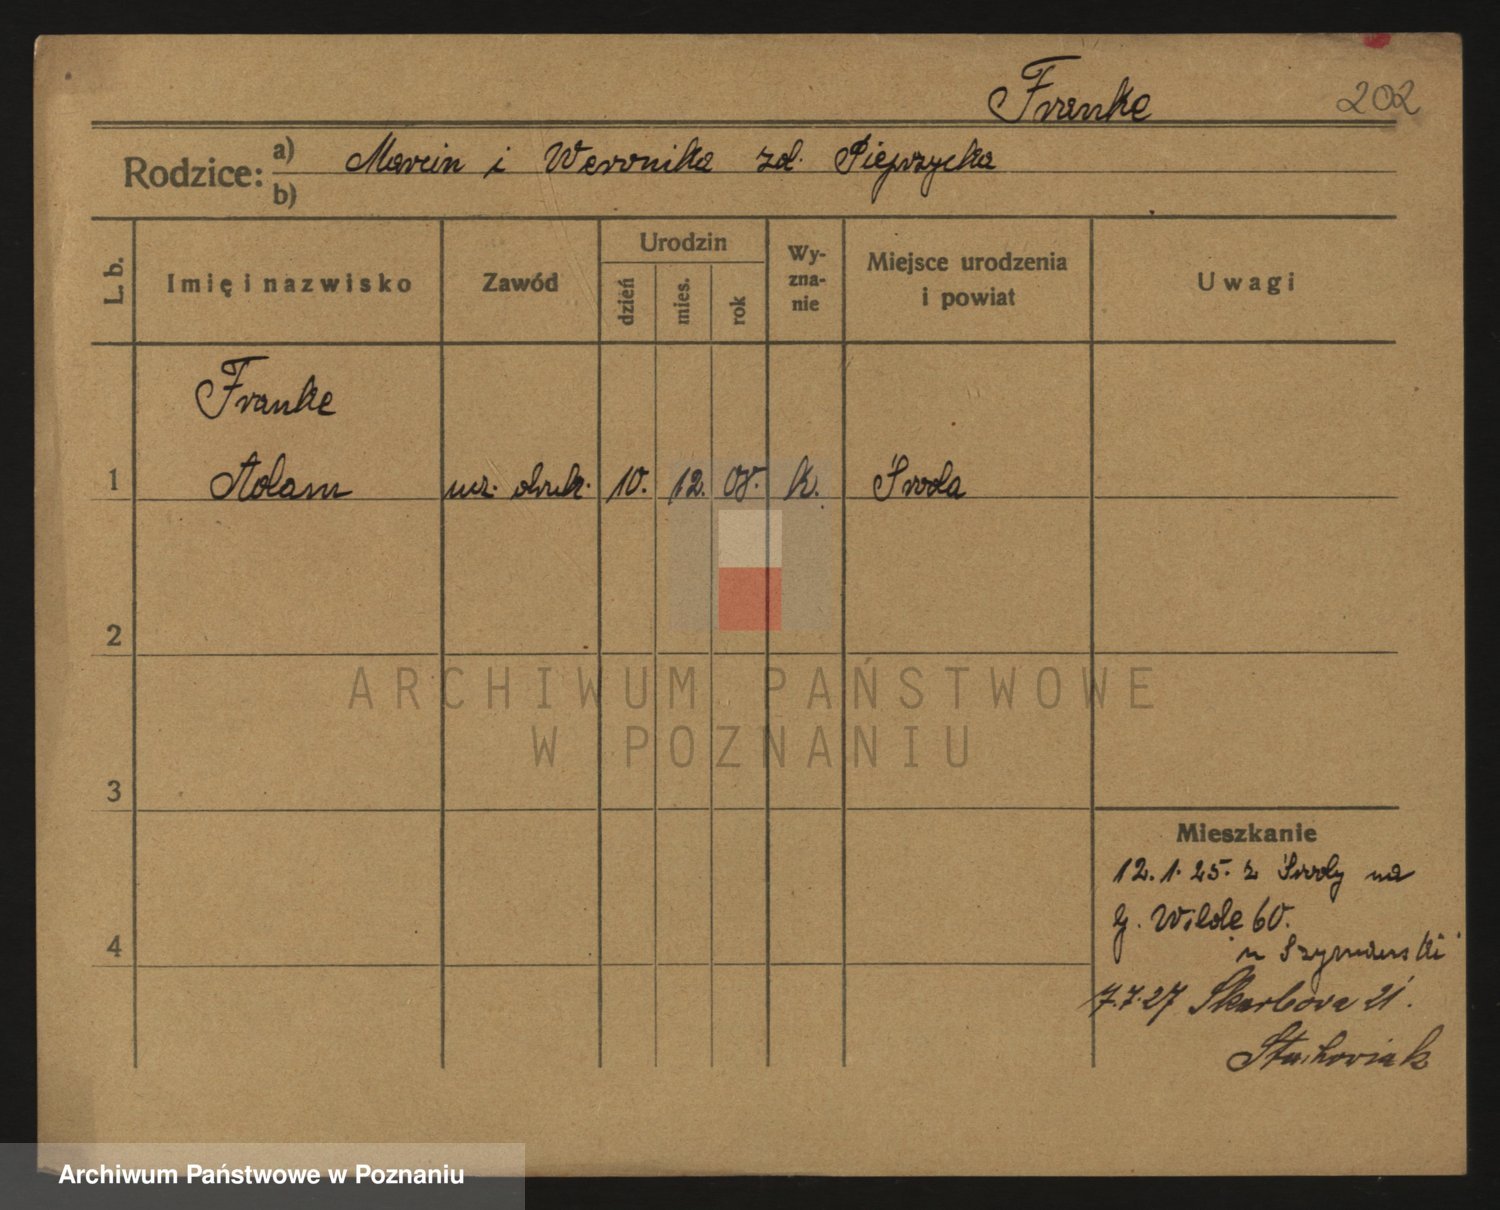 Franke 202
Rodzice: a) Marcin i Weronika zd. Pieprzycka
b)
L. b. Imię i nazwisko Zawód Urodzin dzień mies. rok Wy-zna-nie Miejsce urodzenia i powiat Uwagi
Franke
1 Adam ucz. druk. 10. 12. 08. k. Środa
2
ARCHIWUM PAŃSTWOWE
W POZNANIU
3
Mieszkanie
12.1.25. z Środy na
G. Wilde 60.
4
u Szymański
7.7.27 Skarbowa 21.
Stachowiak
Archiwum Państwowe w Poznaniu